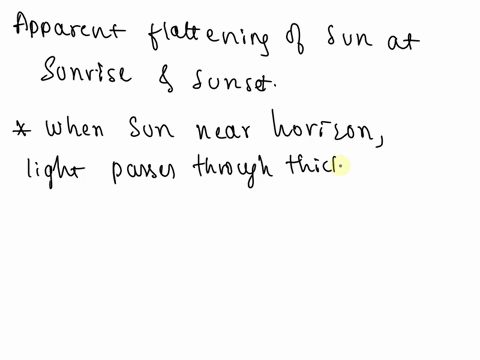 Apparent flattening of sun at
Sunrise & sunset.
* when sun near horizon,
light passes through thick